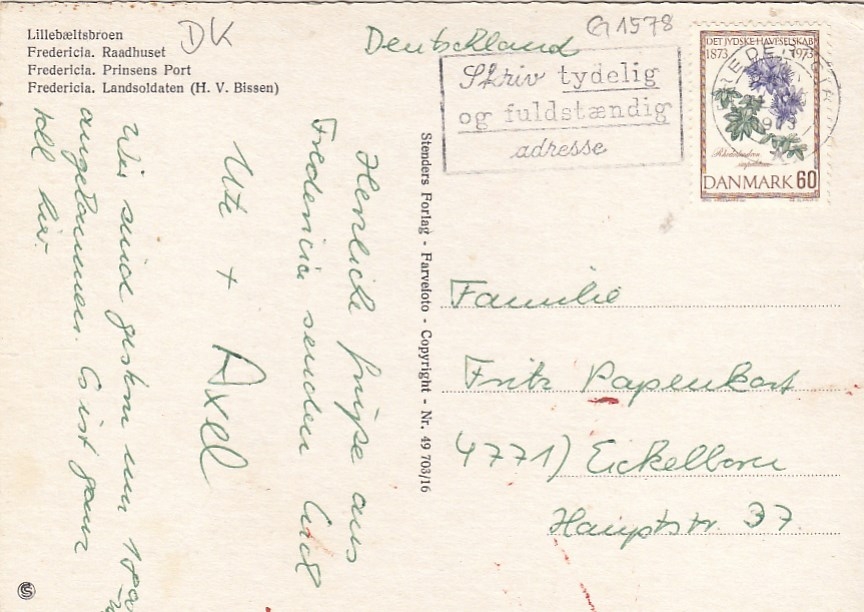 Lillebæltsbroen
Fredericia. Raadhuset
Fredericia. Prinsens Port
Fredericia. Landsoldaten (H. V. Bissen)
DK
Deutschland
G 1578
Skriv tydelig
og fuldstændig
adresse
DET JYDSKE HAVESELSKAB
1873 1973
Rhododendron
DANMARK 60
FREDERICIA
1973
Stenders Forlag - Farveloto - Copyright - Nr. 49 703/16
Herzliche Grüße aus
Fredericia senden Euch
Ute + Axel
Wir sind gestern um 18
angekommen. Es ist ganz
toll hier.
Familie
Fritz Papenkort
4771) Eickelborn
Hauptstr. 37